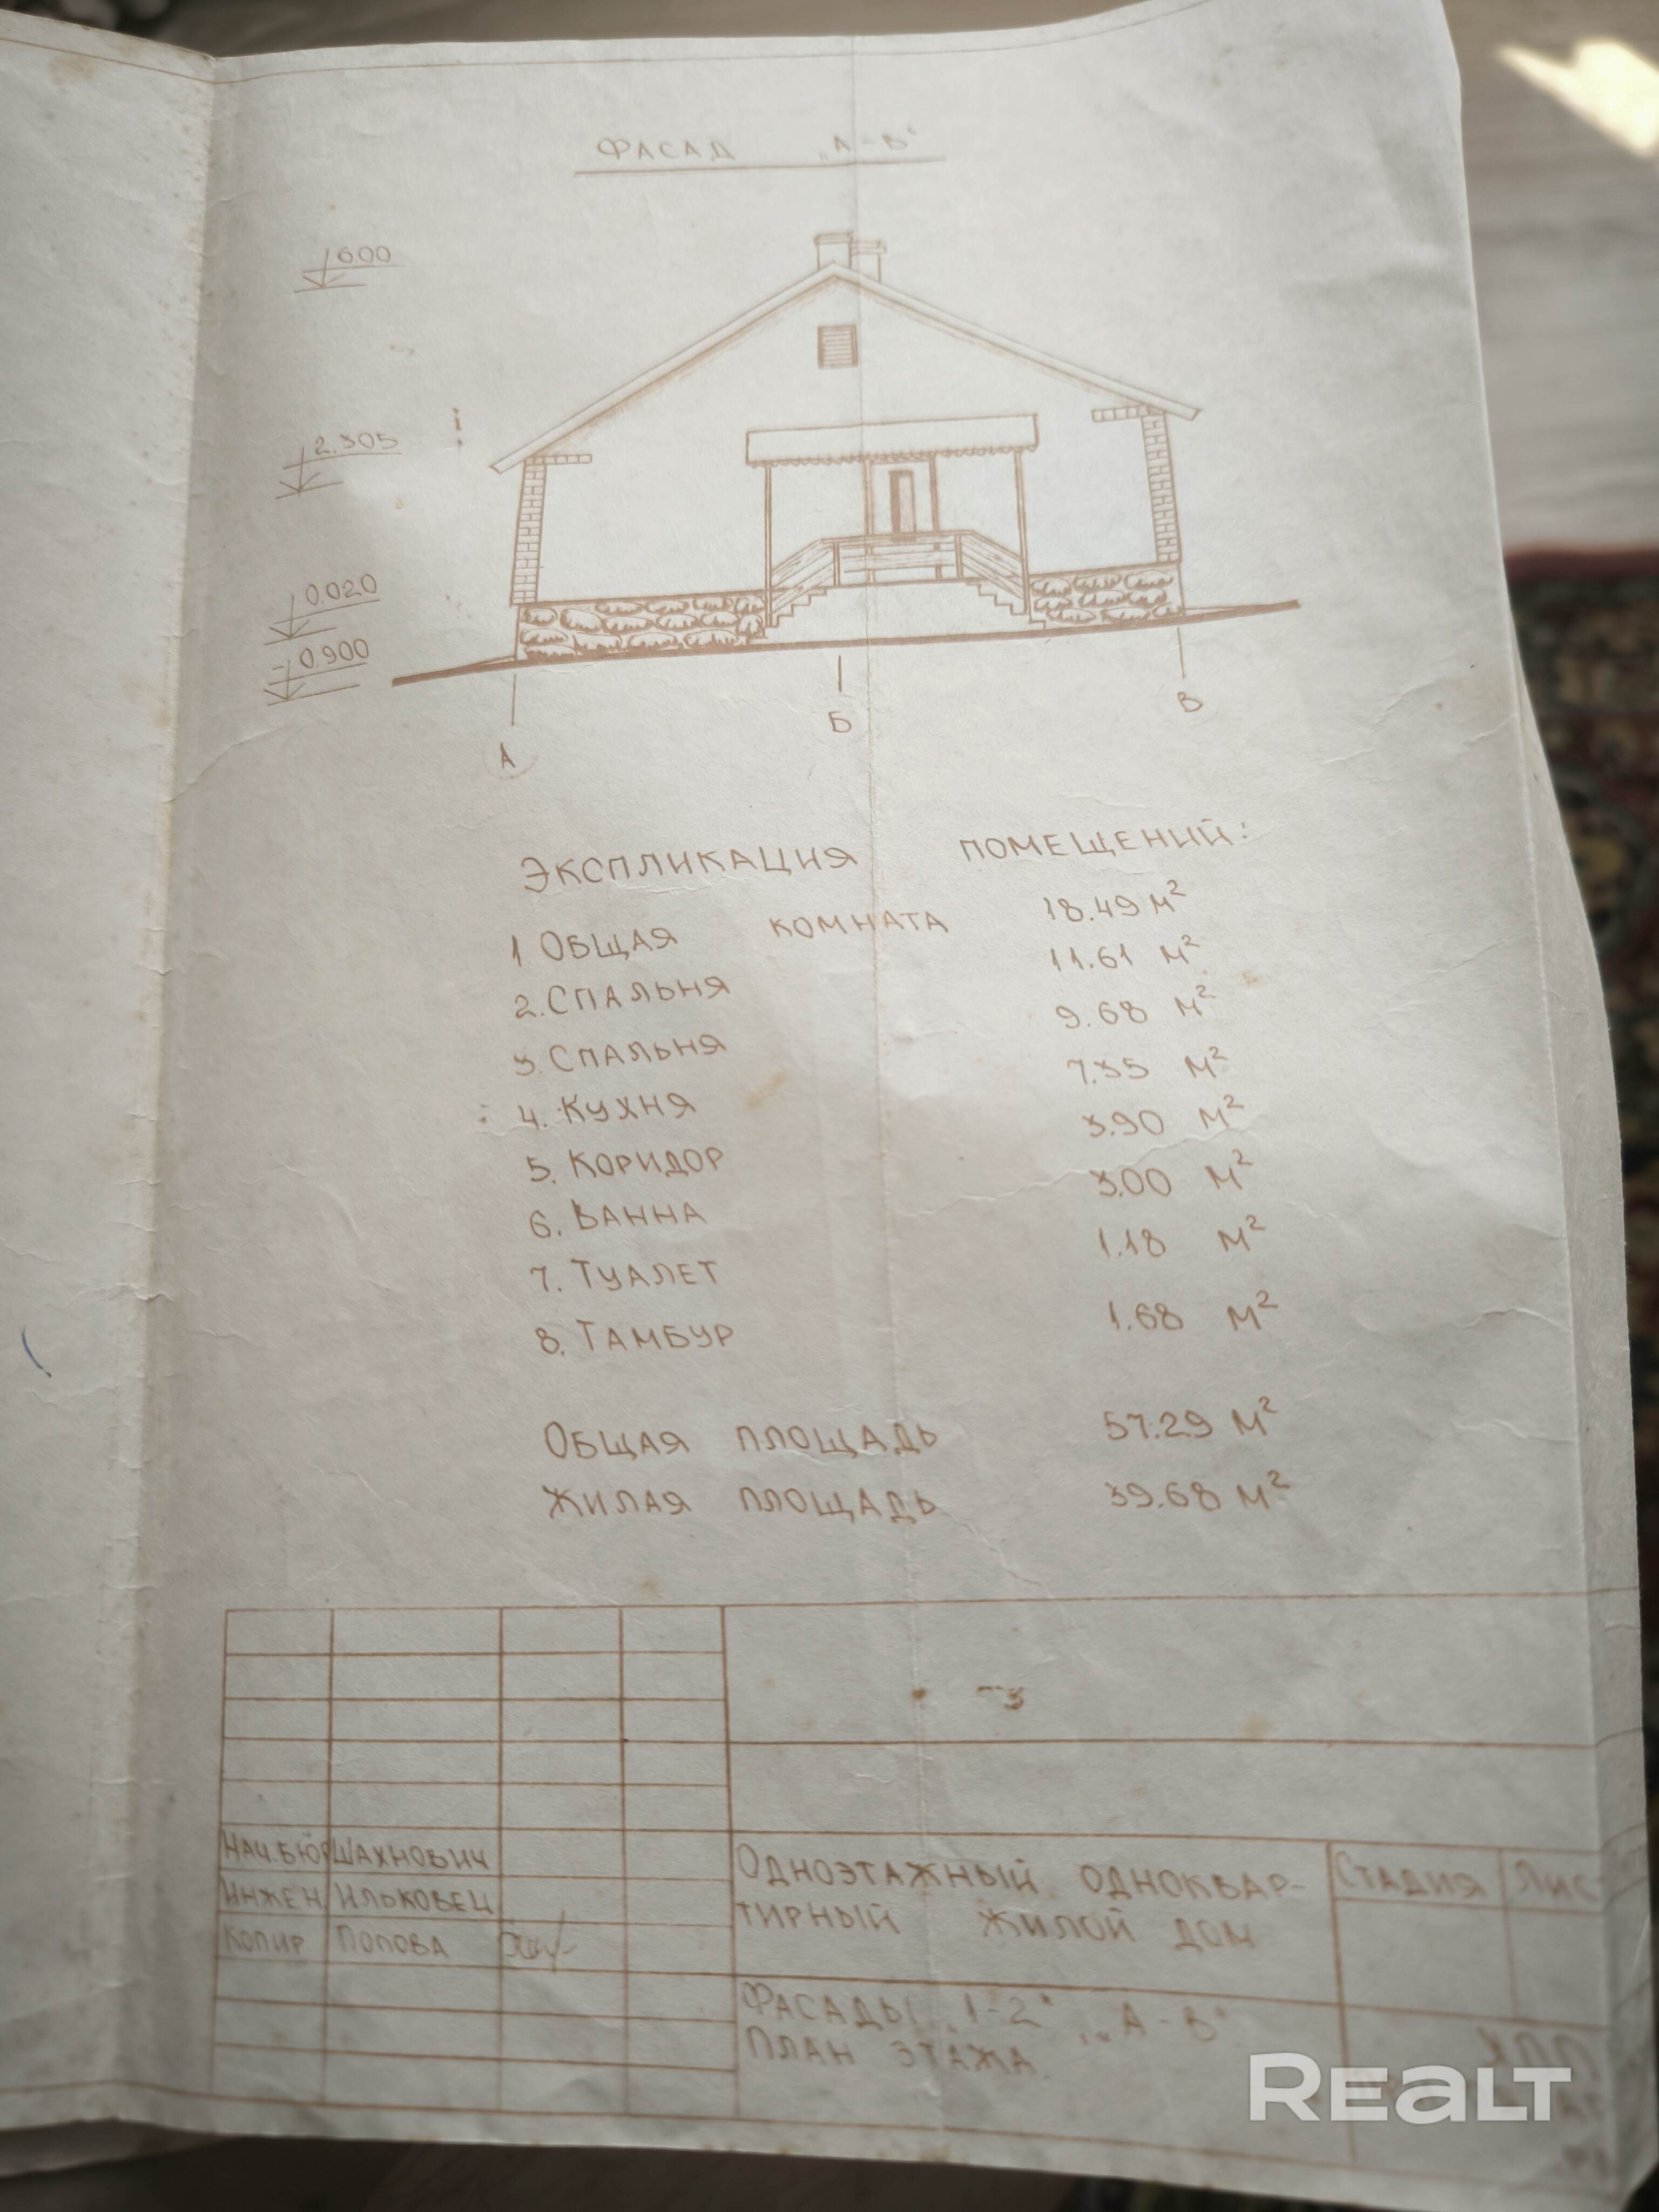 ФАСАД „А-В"
6.00
2.305
0.020
-0.900
А
Б
В
ЭКСПЛИКАЦИЯ ПОМЕЩЕНИЙ:
1 ОБЩАЯ КОМНАТА 18.49 М²
2. СПАЛЬНЯ 11.61 М²
3. СПАЛЬНЯ 9.68 М²
4. КУХНЯ 7.35 М²
5. КОРИДОР 3.90 М²
6. ВАННА 3.00 М²
7. ТУАЛЕТ 1.18 М²
8. ТАМБУР 1.68 М²
ОБЩАЯ ПЛОЩАДЬ 57.29 М²
ЖИЛАЯ ПЛОЩАДЬ 39.68 М²
НАЧ.БЮР ШАХНОВИЧ
ИНЖЕН ИЛЬКОВЕЦ
КОПИР ПОПОВА
ОДНОЭТАЖНЫЙ ОДНОКВАР-
ТИРНЫЙ ЖИЛОЙ ДОМ
СТАДИЯ ЛИС
ФАСАДЫ „1-2", „А-В"
ПЛАН ЭТАЖА.
REALT